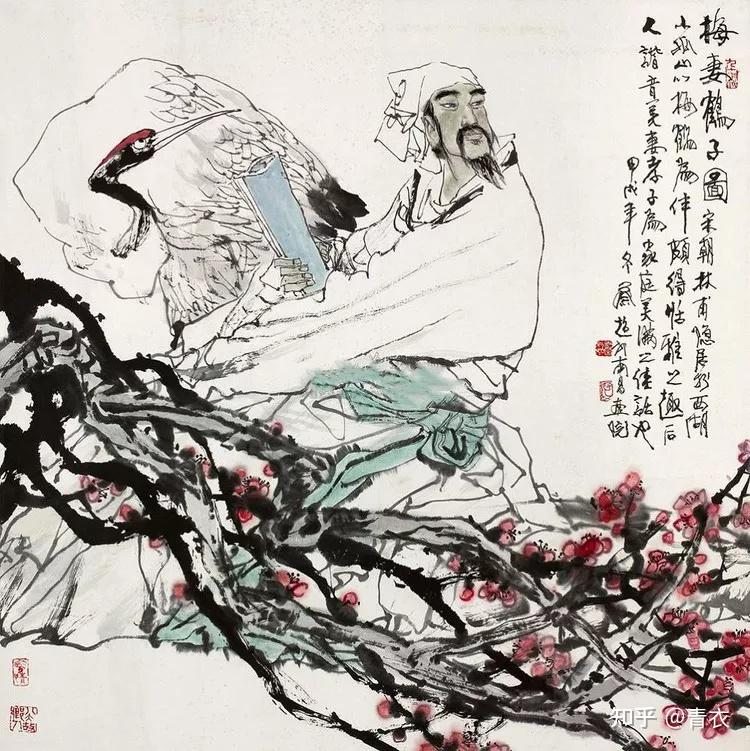 梅妻鶴子圖 宋朝林甫隐居於西湖
小孤山以梅鶴為伴頗得恬雅之趣后
人諧音美妻孝子為家庭美滿之佳話也
甲戌年冬 於南昌画院
知乎 @青衣